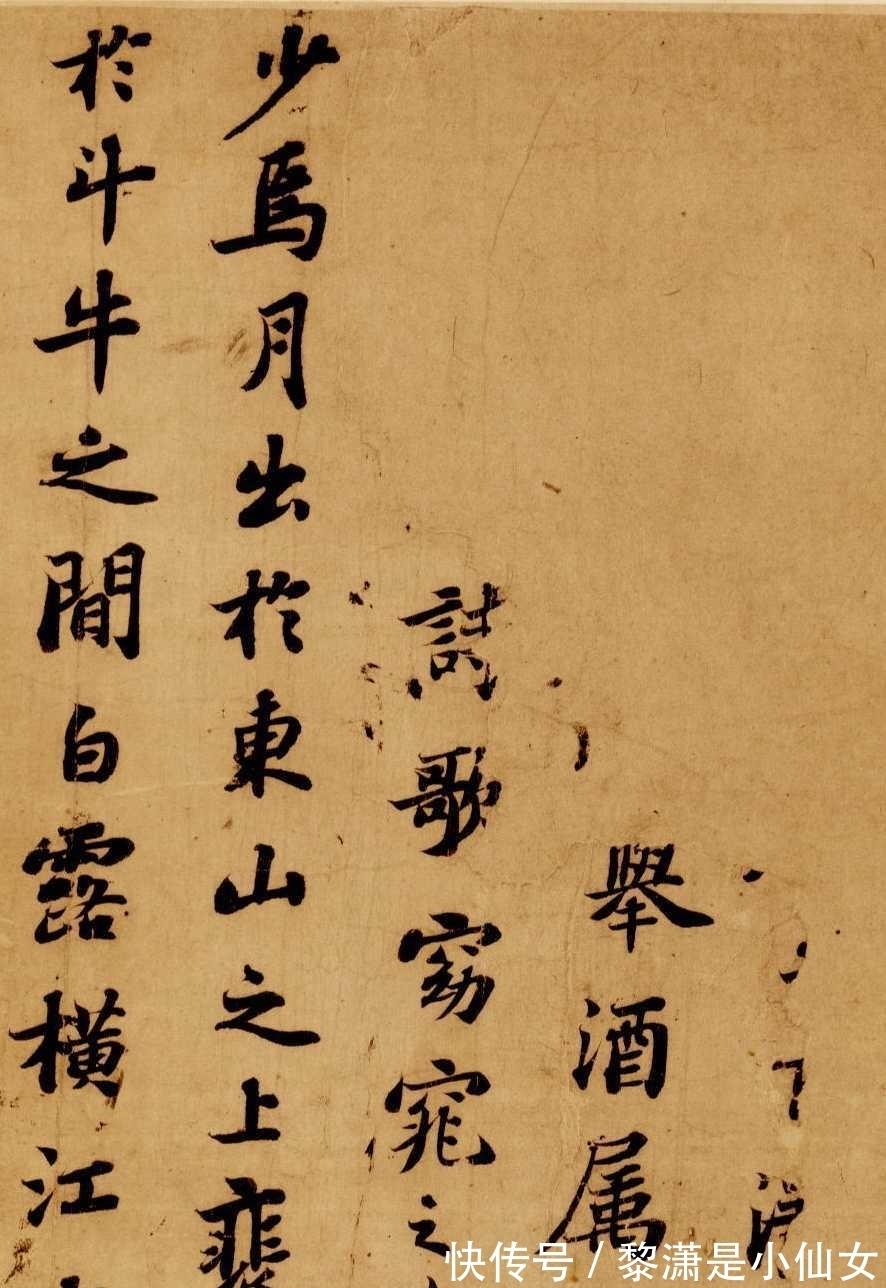 舉酒属
詩歌窈窕之
少焉月出於東山之上裴
於斗牛之間白露橫江
快传号 / 黎潇是小仙女